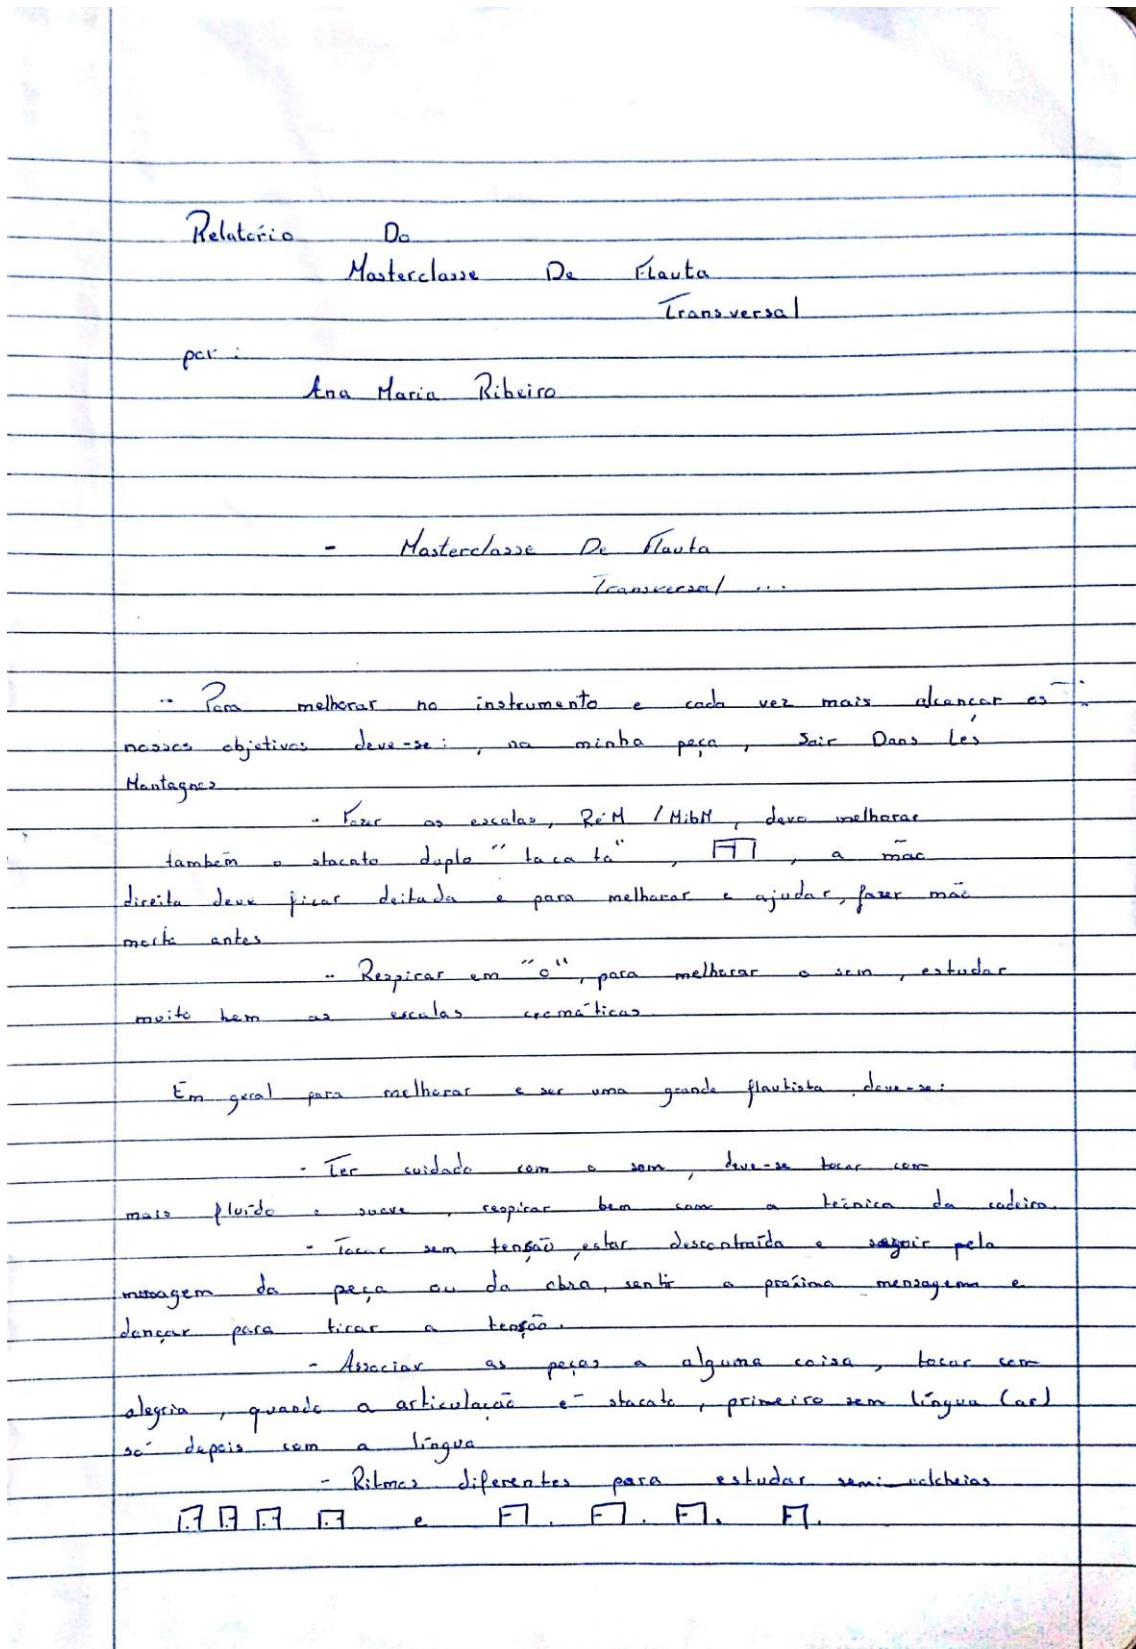 Relatório Do
Masterclasse De Flauta
Transversal
por :
Ana Maria Ribeiro
- Masterclasse De Flauta
Transversal ...
- Para melhorar no instrumento e cada vez mais alcançar os
nossos objetivos deve-se: , na minha peça , Soir Dans Les
Montagnes
- Fazer as escalas, RéM / MibM , devo melhorar
também o stacato duplo "taca ta" , , a mão
direita deve ficar deitada e para melhorar e ajudar, fazer mão
morta antes
- Respirar em "o", para melhorar o som , estudar
muito bem as escalas cromáticas.
Em geral para melhorar e ser uma grande flautista deve-se:
- Ter cuidado com o som , deve-se tocar com
mais fluído e suave , respirar bem com a técnica da cadeira.
- Tocar sem tensão , estar descontraída e seguir pela
mensagem da peça ou da obra, sentir a próxima mensagem e
dançar para tirar a tensão.
- Associar as peças a alguma coisa , tocar com
alegria , quando a articulação é stacato , primeiro sem língua (ar)
só depois com a língua
- Ritmos diferentes para estudar semi colcheias
e